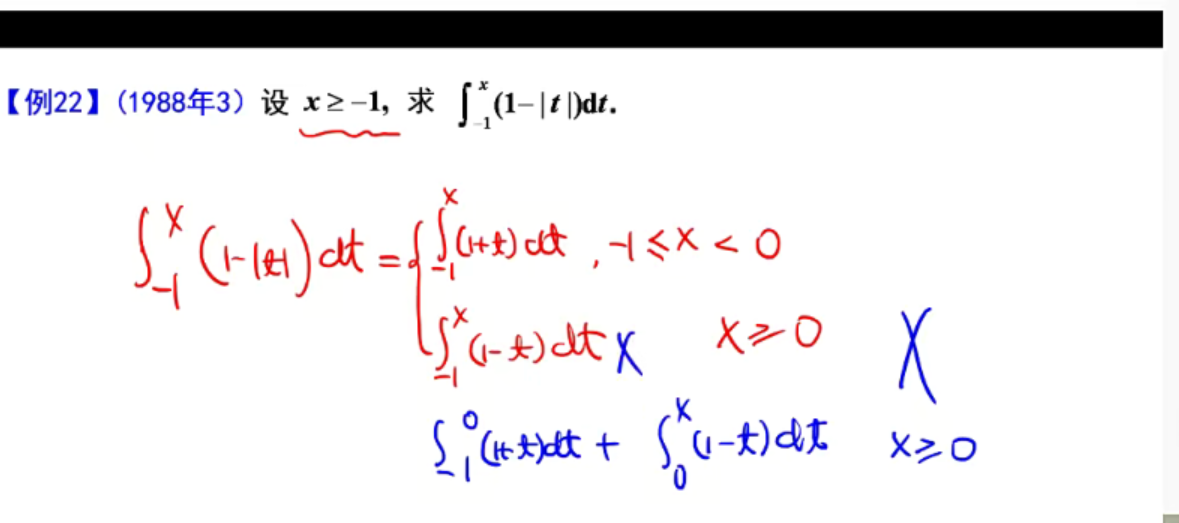 【例22】(1988年3) 设 x≥-1, 求 ∫_{-1}^{x}(1-|t|)dt.
∫_{-1}^{x}(1-|t|)dt = { ∫_{-1}^{x}(1+t)dt , -1≤x<0
∫_{-1}^{x}(1-t)dt X x≥0 X
∫_{-1}^{0}(1+t)dt + ∫_{0}^{x}(1-t)dt x≥0